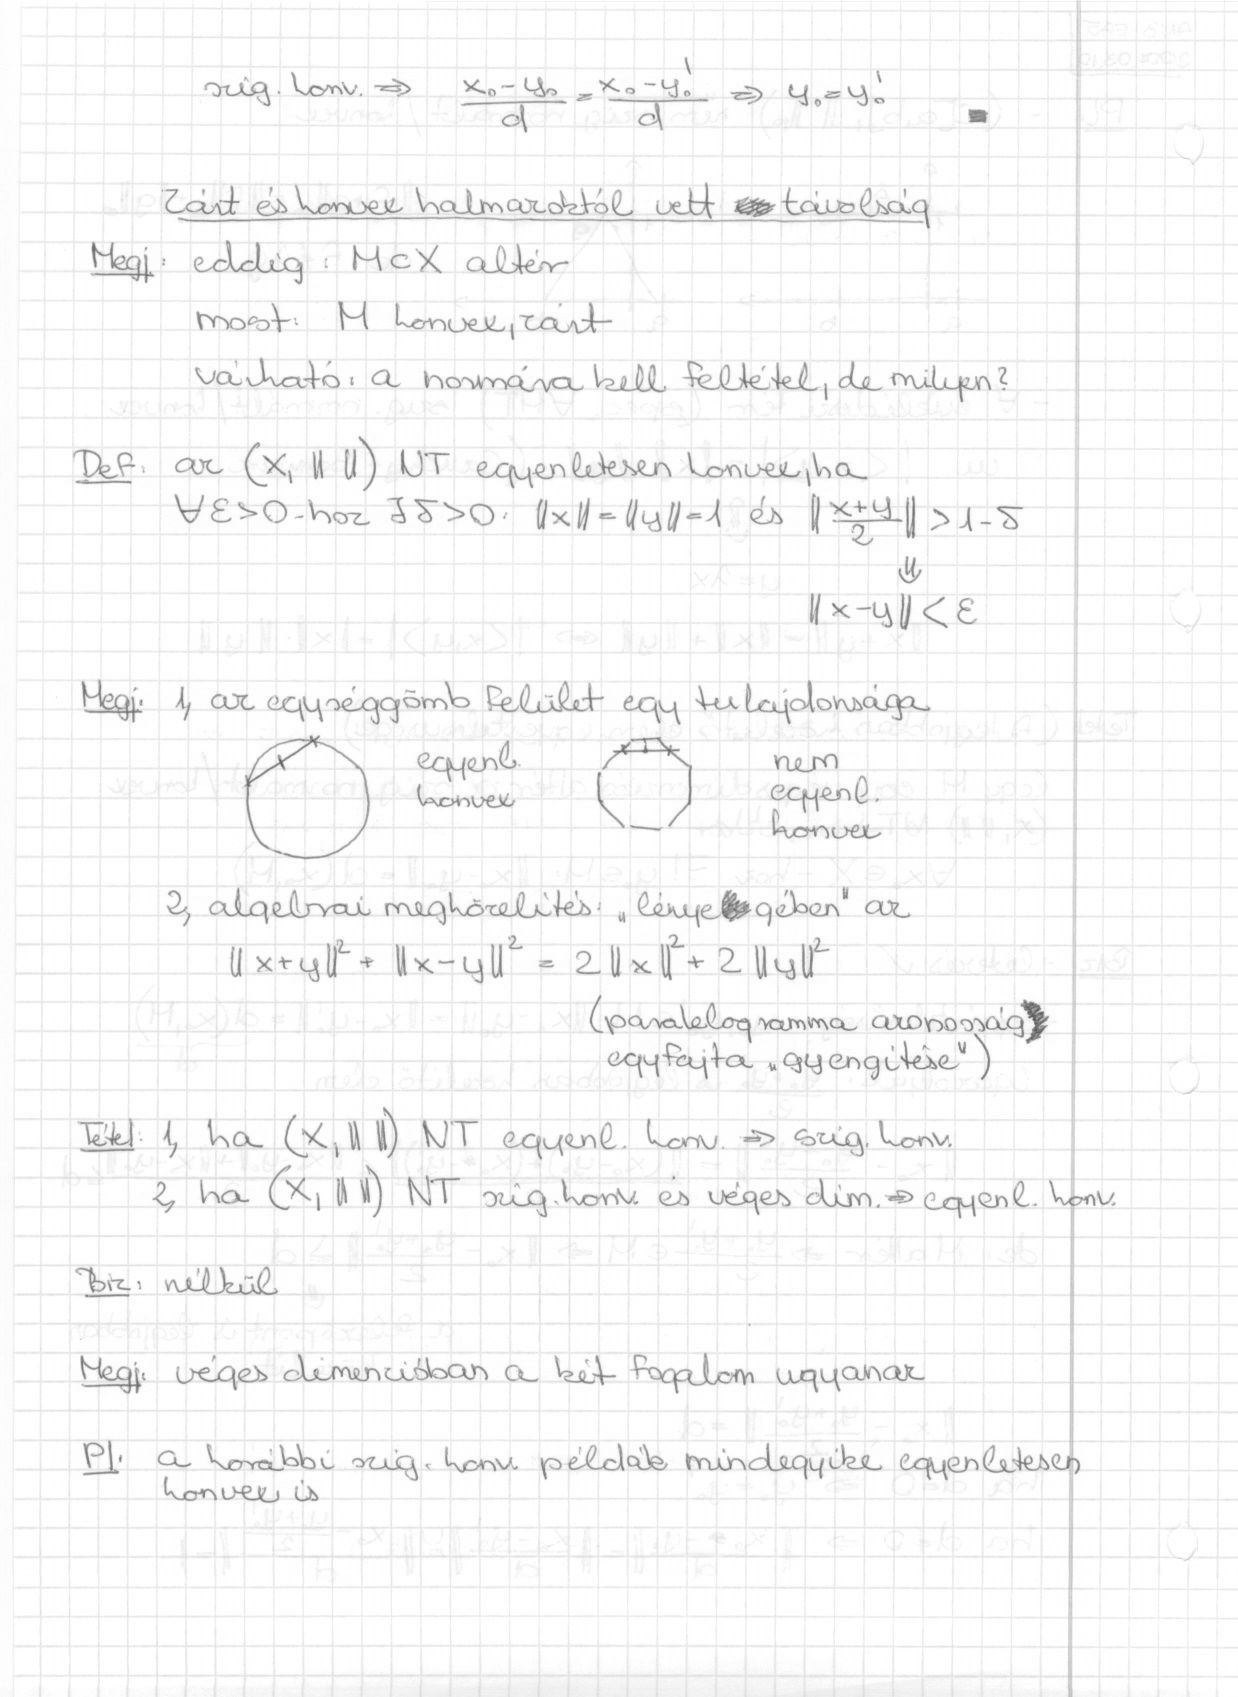 szig. konv. ⇒ (x₀-y₀)/d = (x₀-y₀')/d ⇒ y₀=y₀' ■
Zárt és konvex halmazoktól vett távolság
Megj: eddig: M⊂X altér
most: M konvex, zárt
várható: a normára kell feltétel, de milyen?
Def: az (X, ‖ ‖) NT egyenletesen konvex, ha
∀ε>0-hoz ∃δ>0: ‖x‖=‖y‖=1 és ‖(x+y)/2‖ > 1-δ
⇓
‖x-y‖ < ε
Megj: 1, az egységgömb felület egy tulajdonsága
egyenl. konvex
nem egyenl. konvex
2, algebrai megközelítés: „lényegében" az
‖x+y‖² + ‖x-y‖² = 2‖x‖² + 2‖y‖²
(paralelogramma azonosság
egyfajta „gyengítése")
Tétel: 1, ha (X, ‖ ‖) NT egyenl. konv. ⇒ szig. konv.
2, ha (X, ‖ ‖) NT szig. konv. és véges dim. ⇒ egyenl. konv.
Biz: nélkül
Megj: véges dimenzióban a két fogalom ugyanaz
Pl: a korábbi szig. konv. példák mindegyike egyenletesen
konvex is